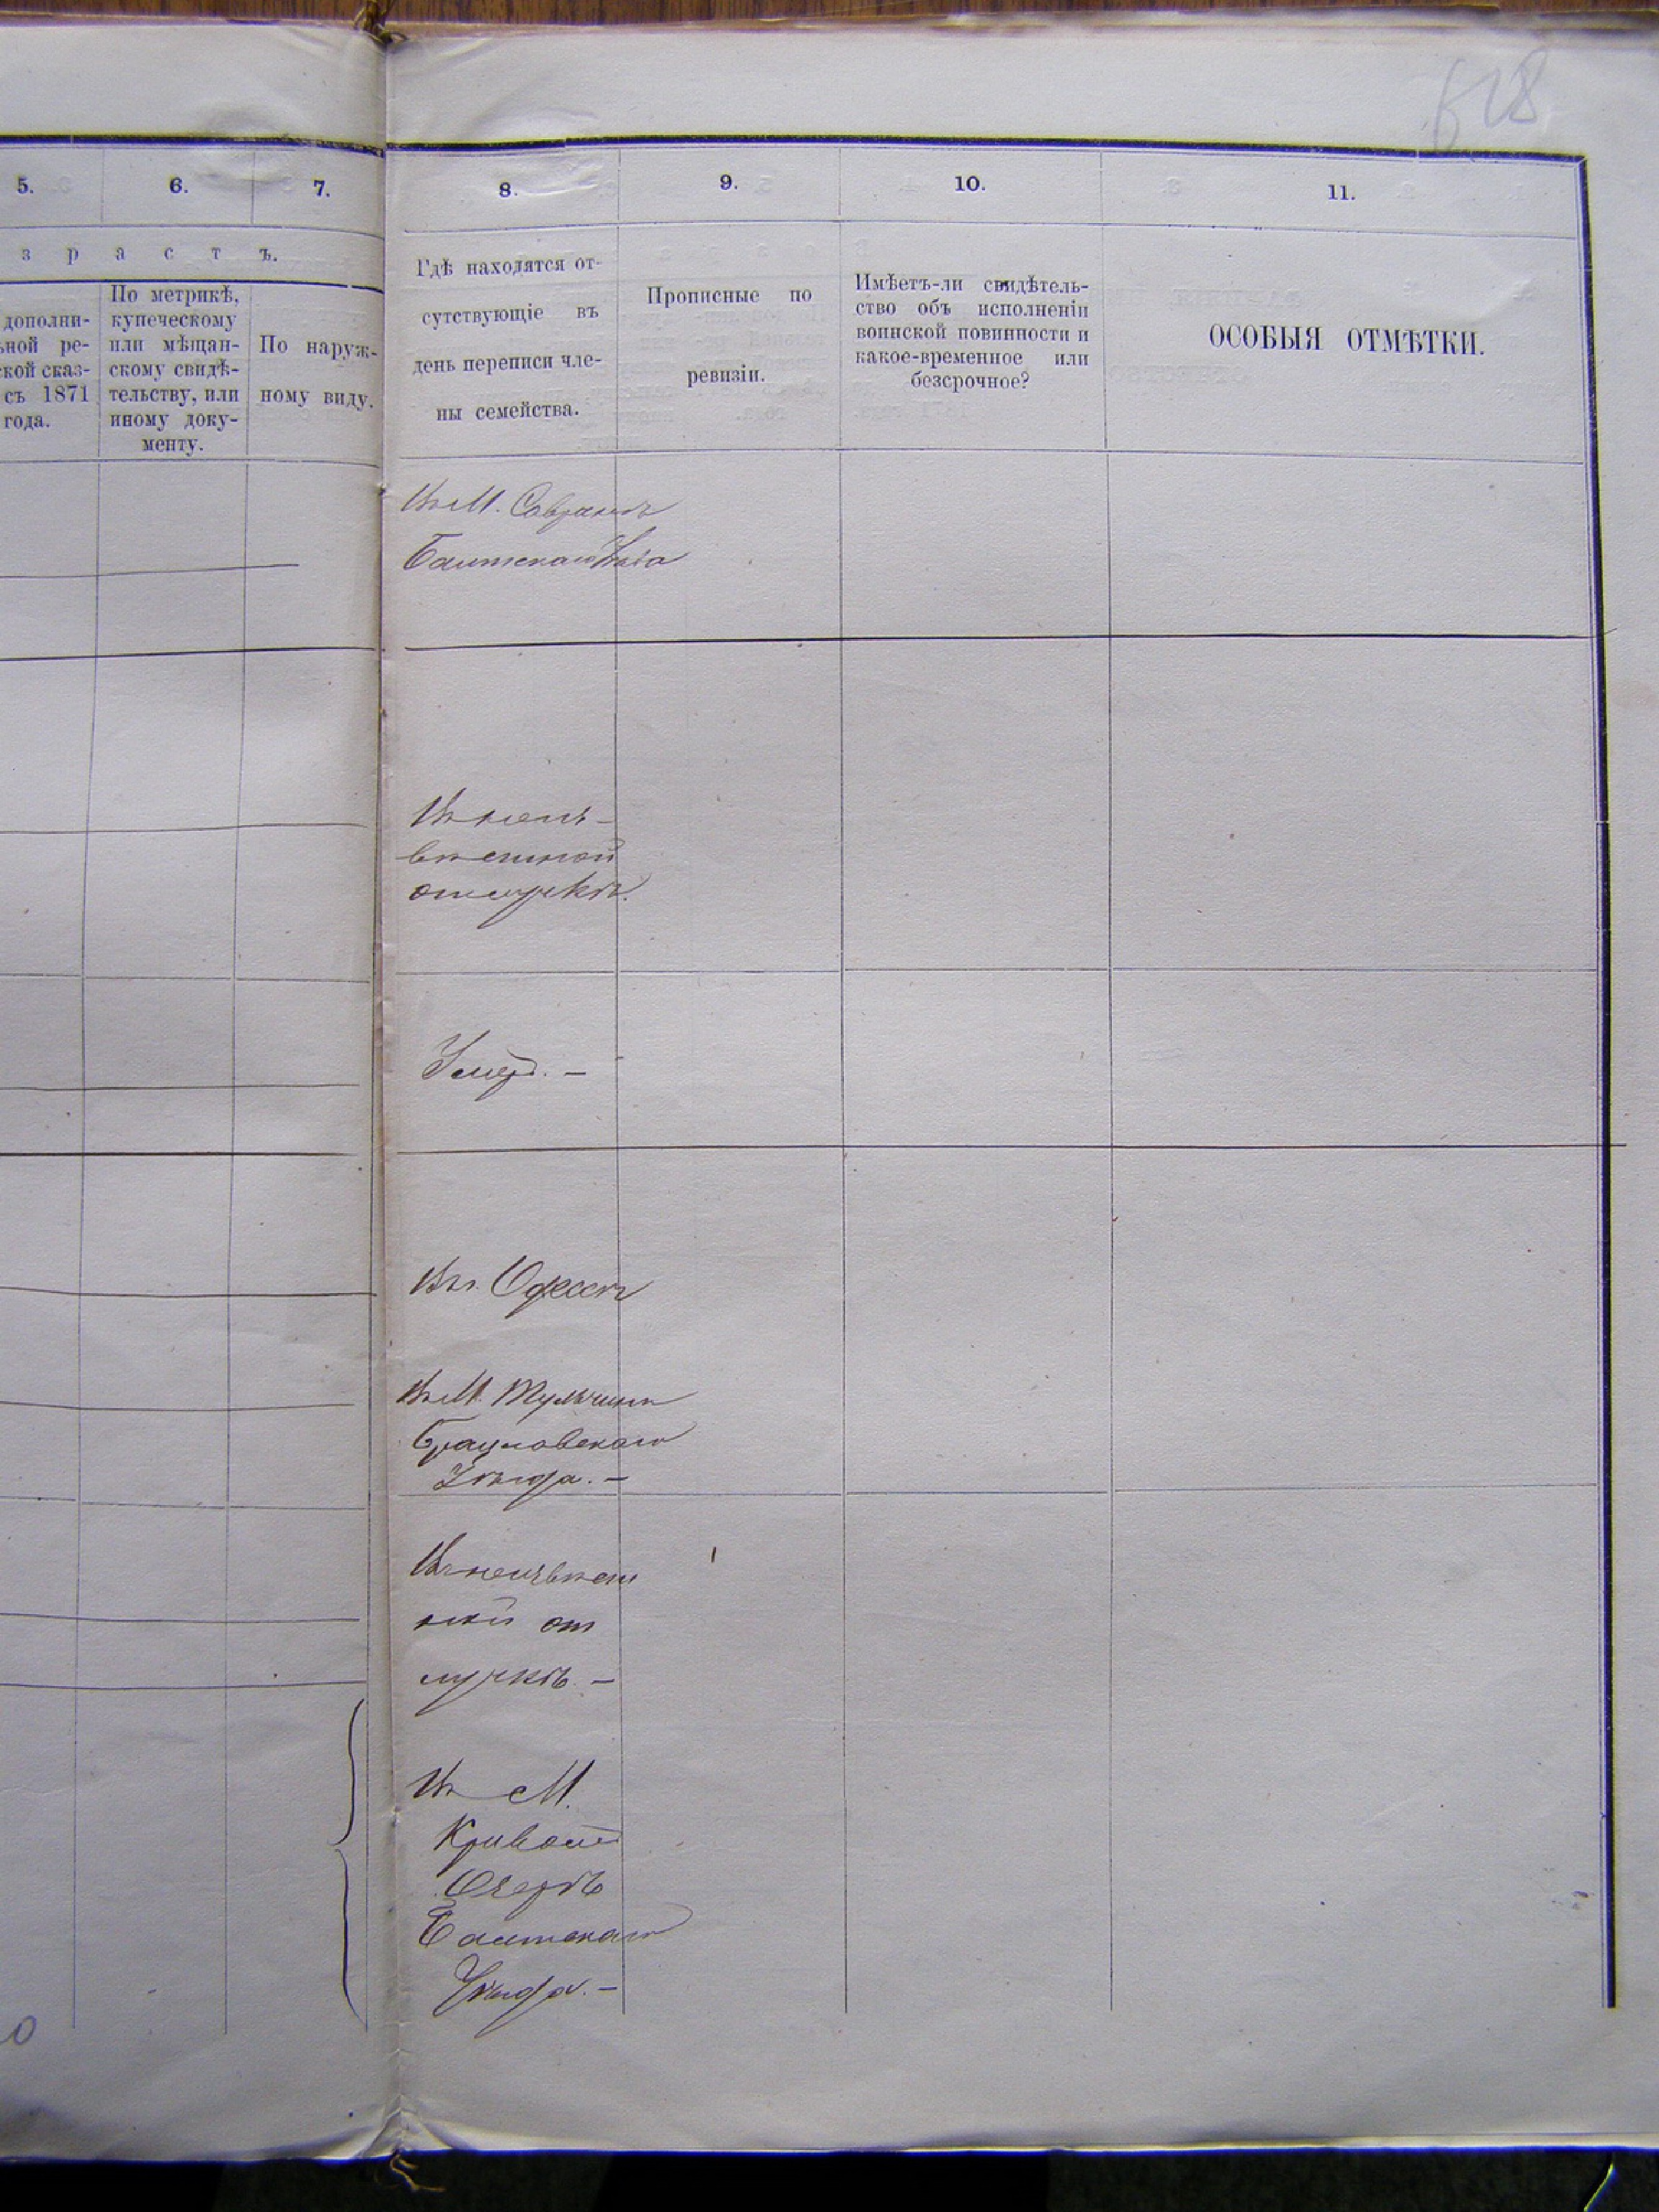 628
5.
6.
7.
8.
9.
10.
11.
з р а с т ъ.
дополни-
ьной ре-
ской сказ-
съ 1871
года.
По метрикѣ,
купеческому
или мѣщан-
скому свидѣ-
тельству, или
иному доку-
менту.
По наруж-
ному виду.
Гдѣ находятся от-
сутствующіе въ
день переписи чле-
ны семейства.
Прописные по
ревизіи.
Имѣетъ-ли свидѣтель-
ство объ исполненіи
воинской повинности и
какое-временное или
безсрочное?
ОСОБЫЯ ОТМѢТКИ.
Въ М. Саврани
Балтскаго Уѣзда
Въ неиз-
вѣстной
отлучкѣ.
Умер. –
Въ г. Одессѣ
Въ М. Тульчинѣ
Брацлавскаго
Уѣзда. –
Въ неизвѣст
ной от
лучкѣ. –
Въ М.
Кривомъ
Озерѣ
Балтскаго
Уѣзда. –